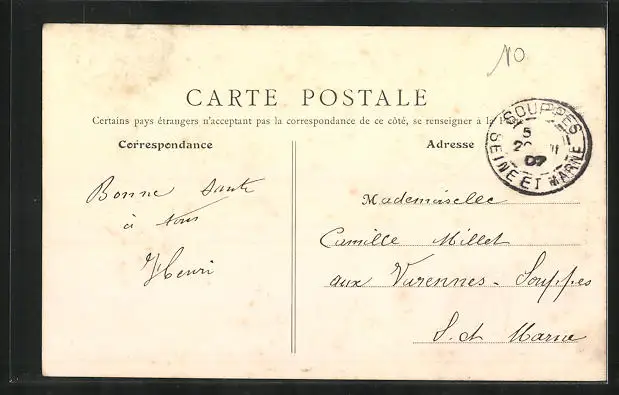 10
CARTE POSTALE
Certains pays étrangers n'acceptant pas la correspondance de ce côté, se renseigner à la
Correspondance
Adresse
SOUPPES
5
07
SEINE ET MARNE
Bonne santé
à tous
Henri
Mademoiselle
Camille Millet
aux Varennes - Souppes
S. et Marne